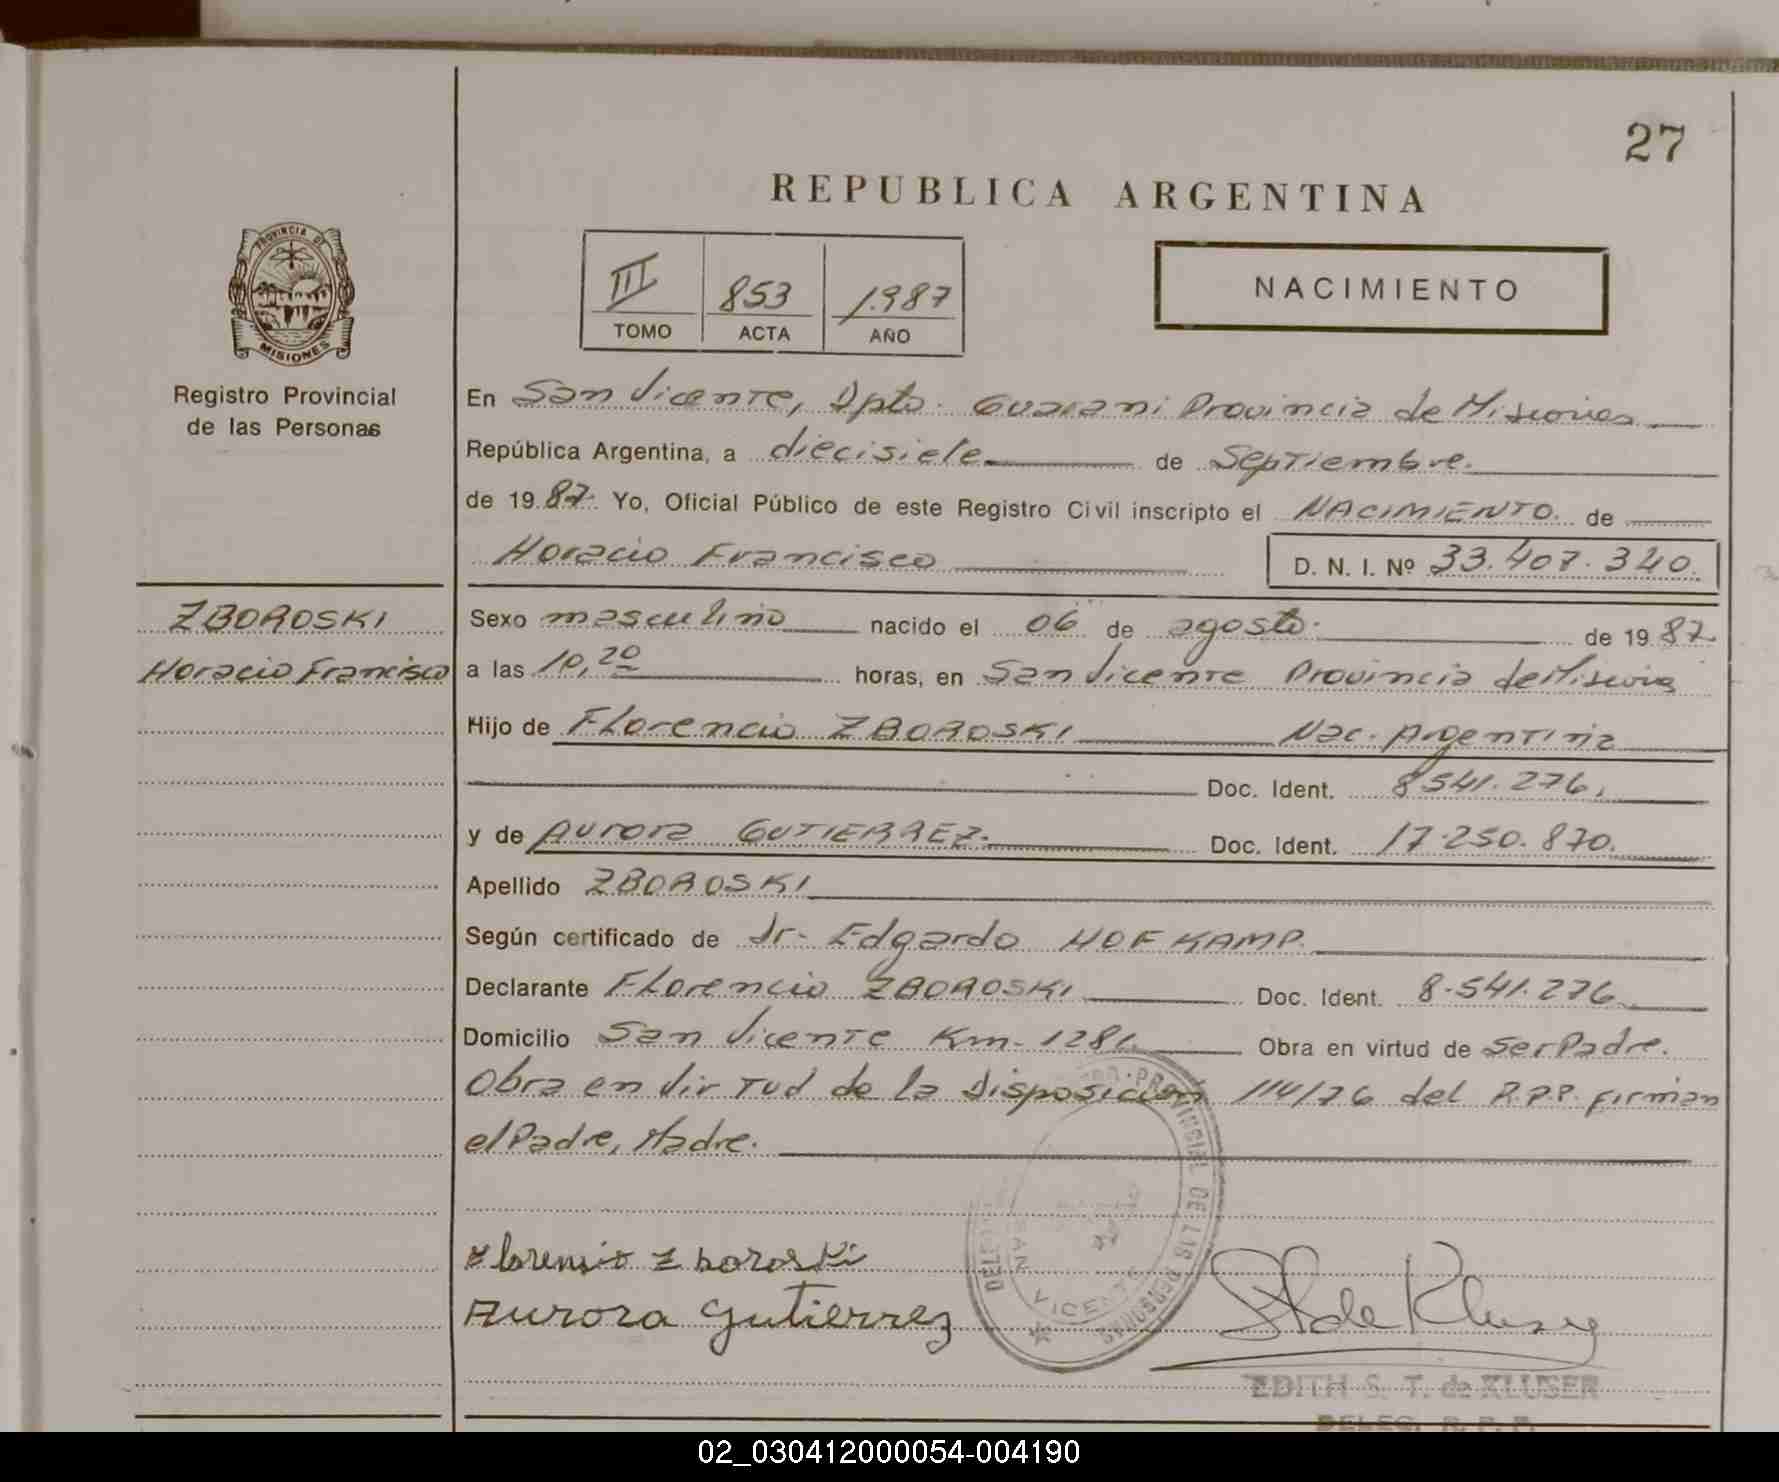 27
REPUBLICA ARGENTINA
PROVINCIA DE
MISIONES
Registro Provincial
de las Personas
III 853 1.987
TOMO ACTA AÑO
NACIMIENTO
En San Vicente, Dpto. Guarani Provincia de Misiones
República Argentina, a diecisiete de Septiembre.
de 19 87. Yo, Oficial Público de este Registro Civil inscripto el NACIMIENTO. de
Horacio Francisco D. N. I. Nº 33.407.340.
ZBOROSKI
Horacio Francisco
Sexo masculino nacido el 06 de agosto. de 19 87
a las 10,20 horas, en San Vicente Provincia de Misiones
Hijo de Florencio ZBOROSKI Nac. Argentina
Doc. Ident. 8541.276.
y de Aurora GUTIERREZ. Doc. Ident. 17.250.870.
Apellido ZBOROSKI
Según certificado de Dr. Edgardo HOFKAMP.
Declarante Florencio ZBOROSKI Doc. Ident. 8.541.276
Domicilio San Vicente Km. 1281. Obra en virtud de Ser Padre.
Obra en Virtud de la Disposicion 114/76 del R.P.P. firman
el Padre, Madre.
PROVINCIAL DE LAS PERSONAS
SAN VICENTE
Florensio Zboroski
Aurora Gutierrez
EDITH S. T. de KLUSER
DELEG. R.P.P.
02_030412000054-004190